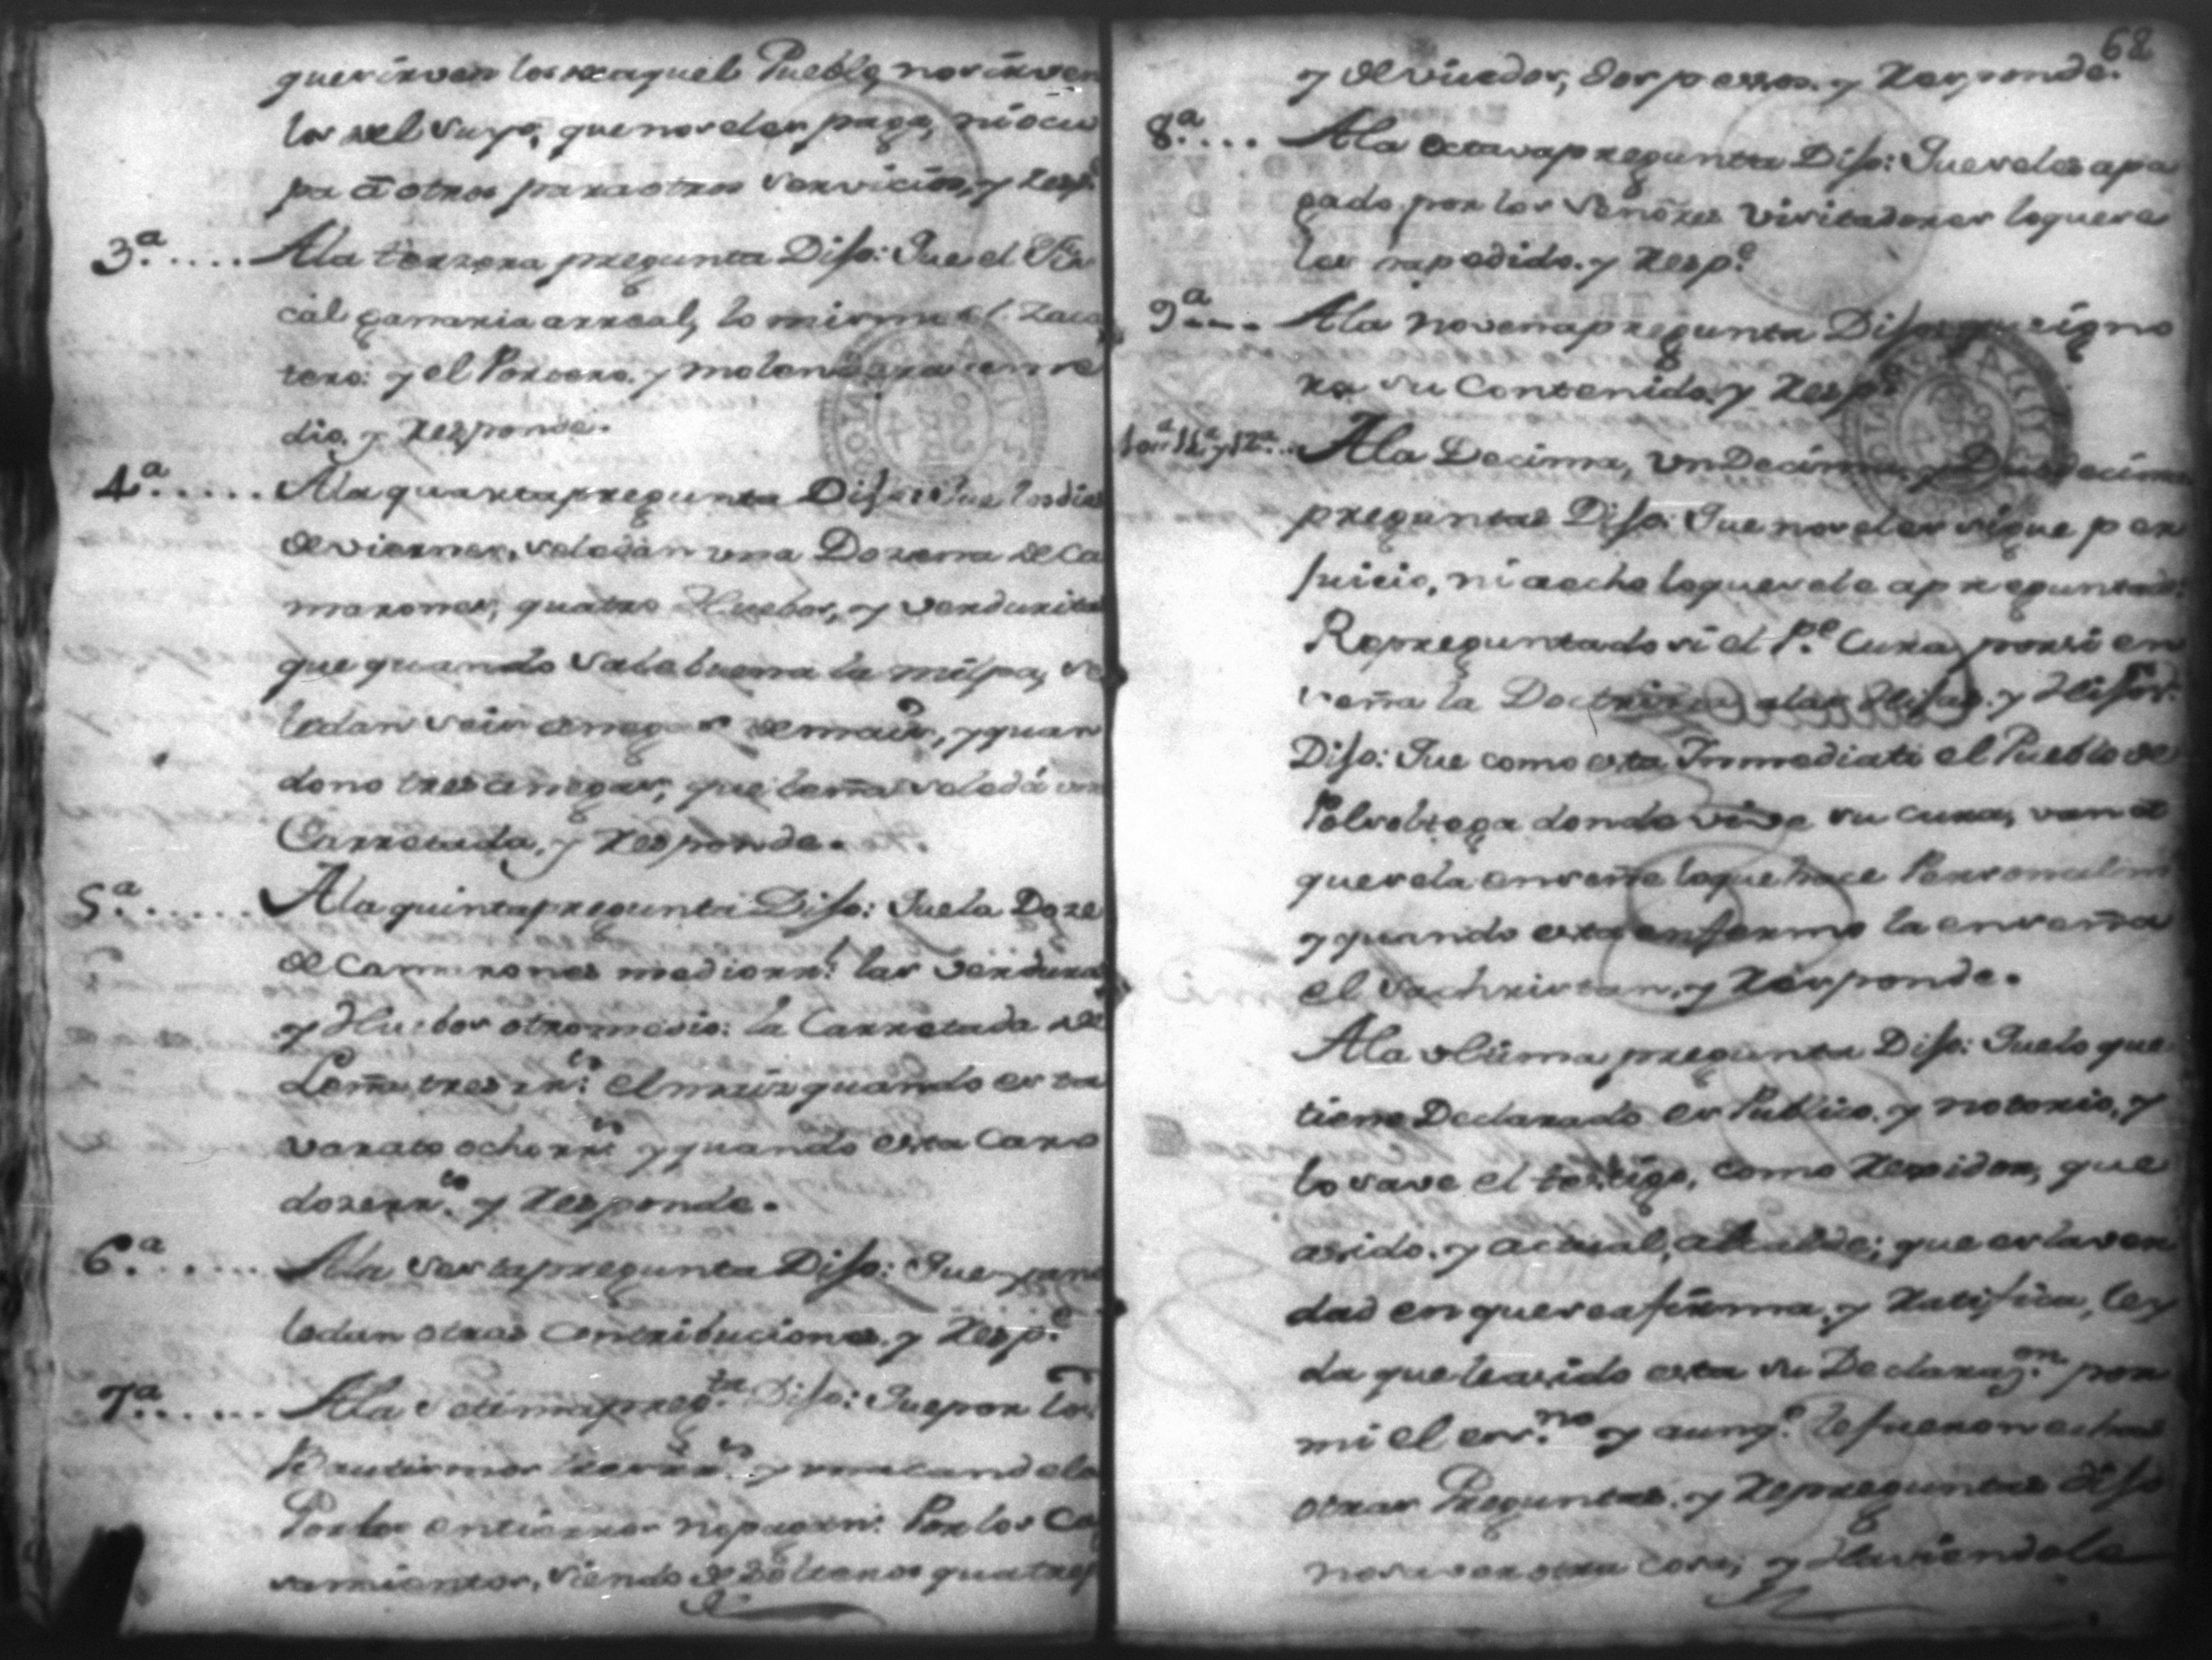 que sirven los de aquel Pueblo, no sirven
los del suyo, que no se les paga, ni ocu
pa â otros para otros servicios, y resp.e
3.a..... A la terzera pregunta Dijo: Que el Fis
cal ganaria a rreal, lo mismo el Zaca
tero: y el Porsero, y molendera a un me
dio, y responde.
4.a...... A la quarta pregunta Dijo: Que los dias
de viernes, se le dan una Dozena de Ca
marones, quatro Huebos, y verduritas
que quando sale buena la milpa, se
le dan seis anegas de maiz, y quan
do no tres anegas, que leña se le dá una
Carretada, y responde.
5.a...... A la quinta pregunta Dijo: Que la Doze
de Camarones medio rr.l las verduras
y Huebos otro medio: la Carretada de
Leña tres rr.s el maiz quando esta
varato ocho rr.s y quando esta caro
doze rr.s y responde.
6.a...... A la sesta pregunta Dijo: Que
le dan otras contribuciones, y resp.e
7.a...... A la setima preg.ta Dijo: Que por los
Bautismos tres rr.s y una candela
Por los entierros no pagan: Por los ca
samientos, siendo de solteros quatro p
68
y de viudos, dos pesos, y responde.
8.a.... A la octava pregunta Dijo: Que se les a pa
gado por los Señores Visitadores lo que se
les ha pedido, y resp.e
9.a.... A la novena pregunta Dijo: que igno
ra su Contenido, y resp.e
10.a 11.a y 12.a... A la Decima, un Decima, y Duodecima
preguntas Dijo: Que no se les sigue per
juicio, ni a echo lo que se le a preguntado.
Repreguntado si el P.e Cura por si en
seña la Doctrina a las Hijas, y Hijos.
Dijo: Que como esta Immediato el Pueblo de
donde vive su cura, van â
que se la enseñe lo que hace Personalm
y quando esta enfermo la enseña
el Sachristan, y responde.
A la ultima pregunta Dijo: Que lo que
tiene Declarado es Publico, y notorio, y
lo save el testigo, como rexidor, que
a sido, y actual, alcalde; que es la ver
dad en que se afirma, y ratifica, ley
da que le a sido esta su Declaraz.on por
mi el ess.no y aunq.e le fueron echas
otras Preguntas, y repreguntas dijo
no saver otra cosa; y Haviendole